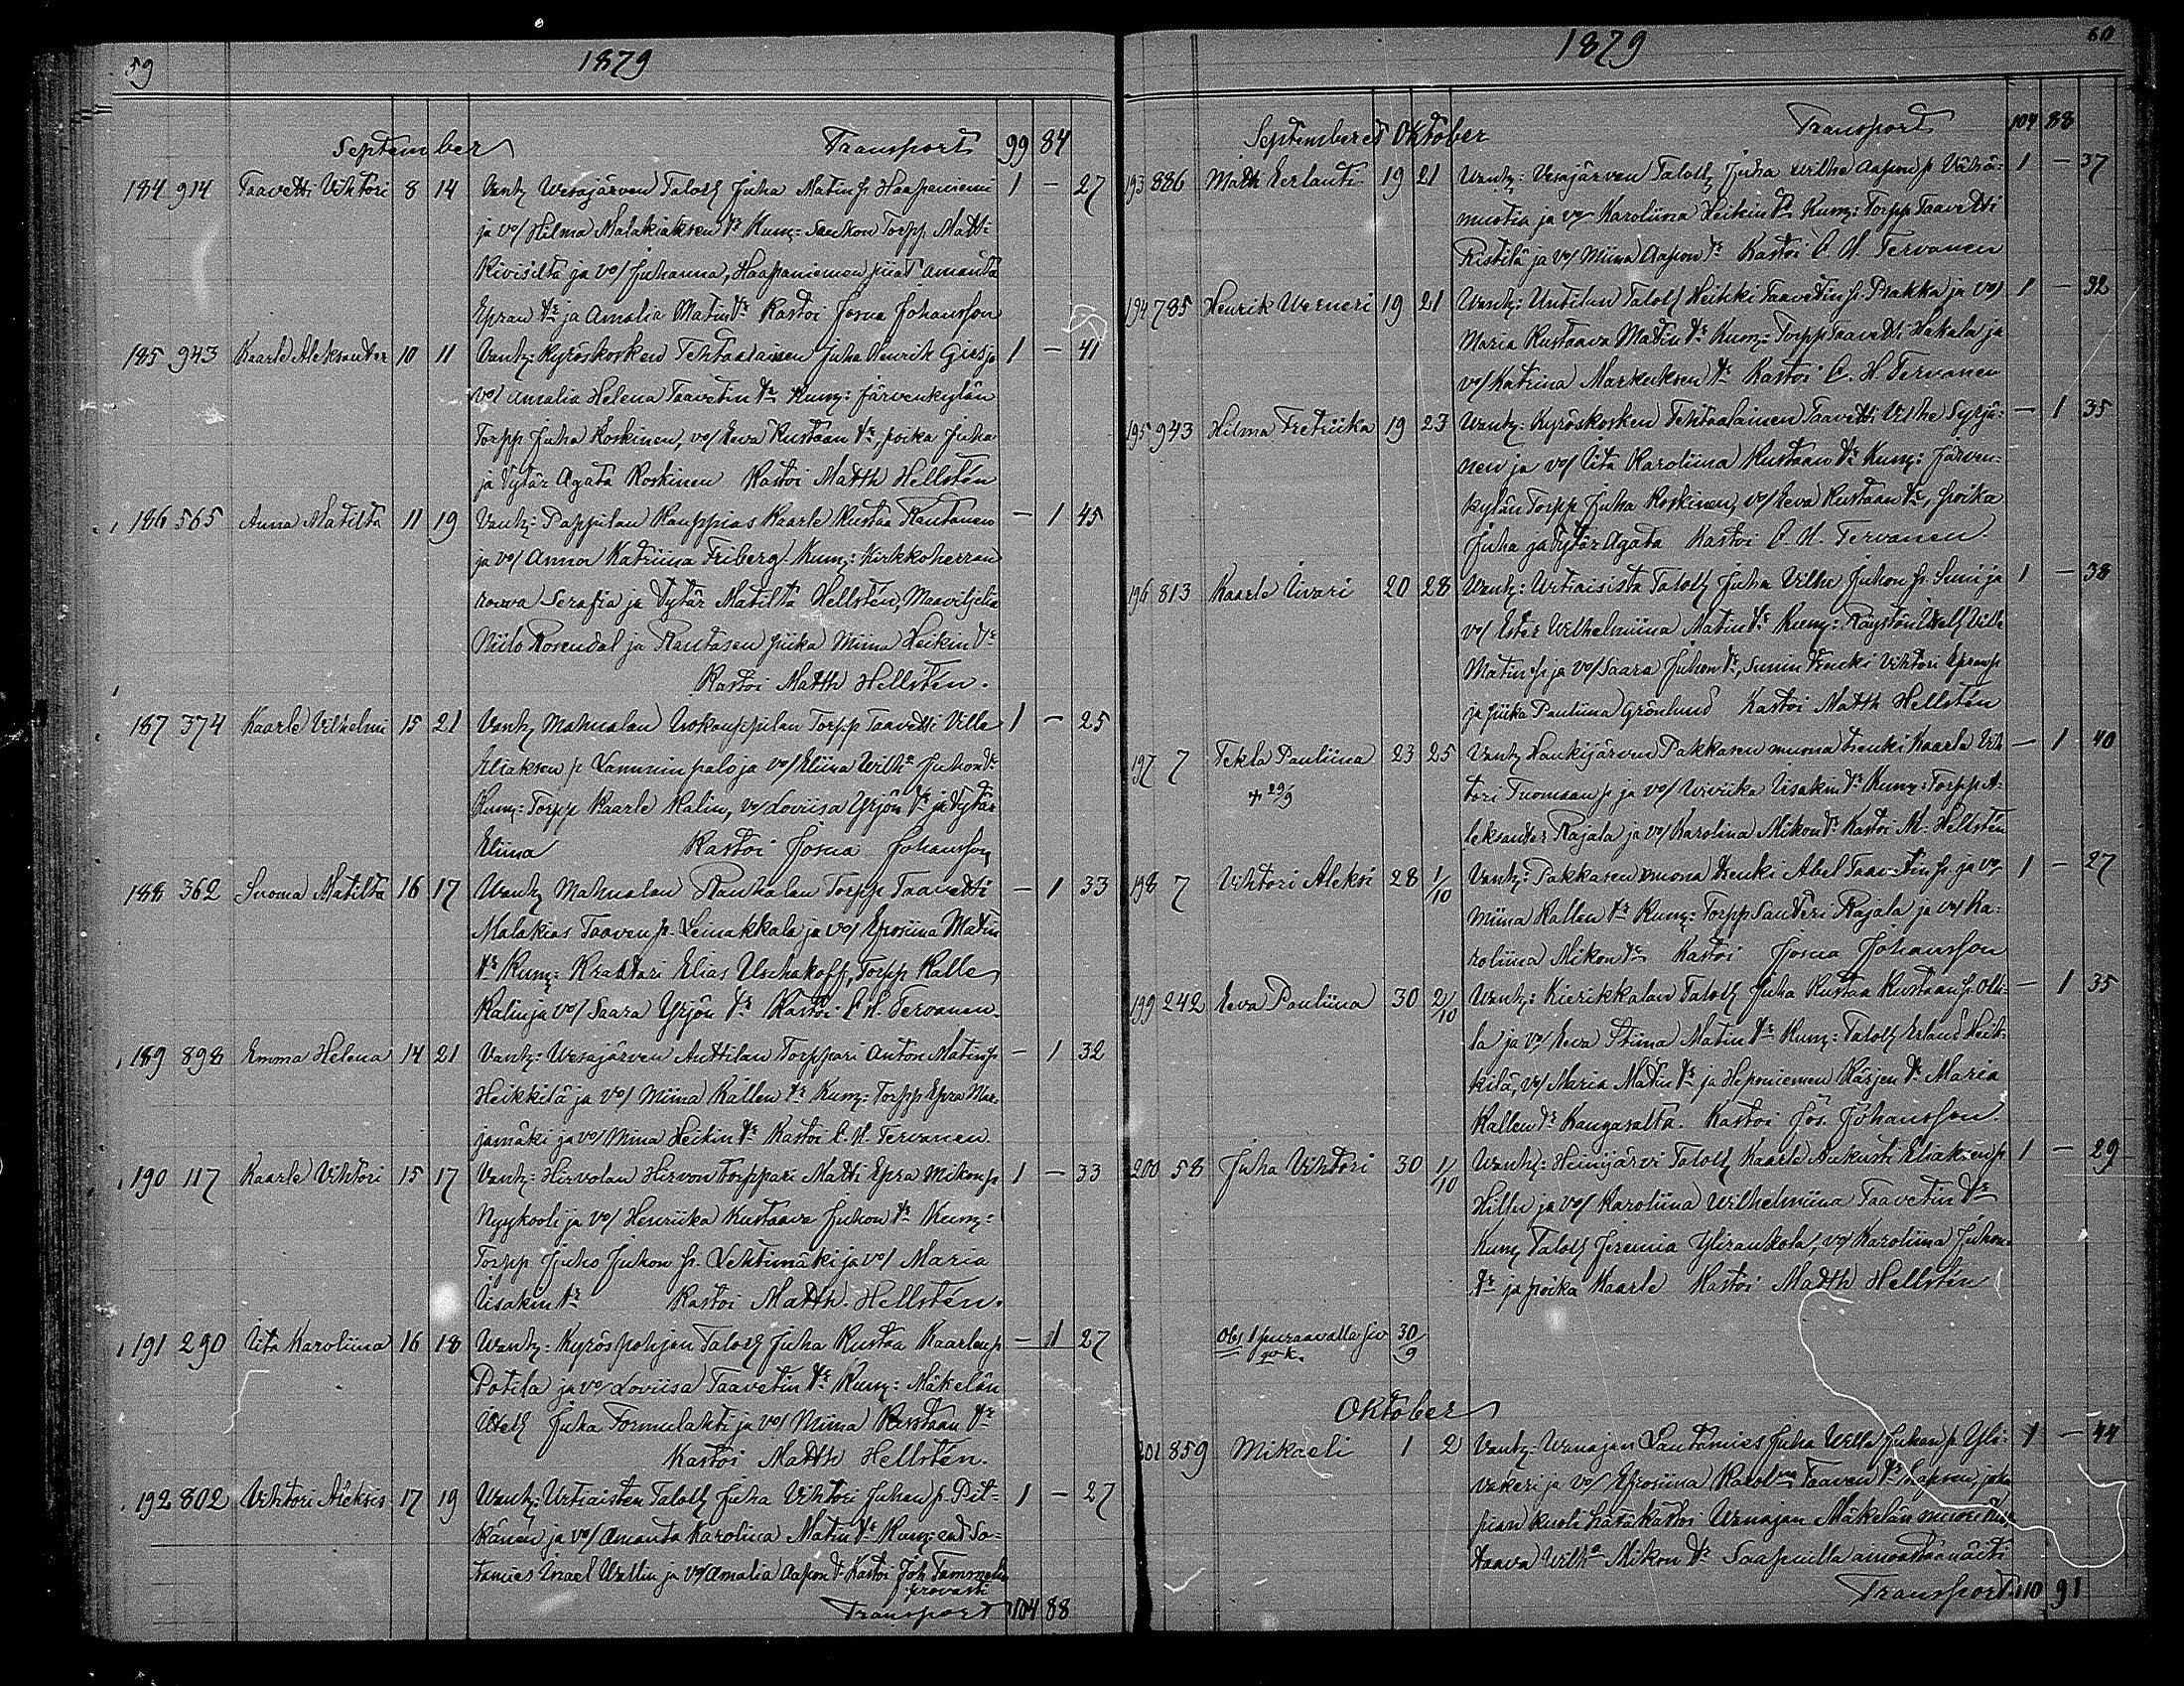 59 1879
September Transport 99 84
184 914 Taavetti Vihtori 8 14 Vanh: Wesajärven Talol: Juha Matin p. Haapaniemi 1 — 27
ja vo/ Hilma Malakiaksen tr Kum: Sankon Torpp. Matti
Kivisilta ja vo/ Juhanna, Haapaniemen piiat Amanta
Epran tr ja Amalia Matin tr Kastoi Josua Johansson
185 943 Kaarle Aleksanter 10 11 Vanh: Kyröskosken Tehtaalainen Juha Henrik Gies ja 1 — 41
vo/ Amalia Helena Taavetin tr Kum: Järvenkylän
Torpp Juha Koskinen, vo/ Eeva Kustaan tr, poika Juha
ja tytär Agata Koskinen Kastoi Matth Hellstén
186 565 Anna Matilta 11 19 Vanh: Pappilan Kauppias Kaarle Kustaa Rautanen — 1 45
ja vo/ Anna Katriina Friberg. Kum: Kirkkoherran
rouva Serafia ja tytär Matilta Hellstén, Maaviljeliä
Niilo Rosendal ja Rautasen piika Miina Heikin tr
Kastoi Matth Hellstén.
187 374 Kaarle Vilhelmi 15 21 Vanh: Mahnalan Uskonppilan Torpp Taavetti Ville 1 — 25
Eliaksen p Lamminpalo ja vo/ Eliina Wilha Juhon tr
Kum: Torpp Kaarle Kalin, vo/ Loviisa Yrjön tr ja tytär
Eliina Kastoi Josua Johansson
188 362 Suoma Matilta 16 17 Vanh: Mahnalan Rauhalan Torpp Taavetti — 1 33
Malakias Taaven p. Leinakkala ja vo/ Efrosiina Matin
tr Kum: Kraatari Elias Uschakoff, Torpp Kalle
Kalin ja vo/ Saara Yrjön tr Kastoi C. H. Tervanen.
189 898 Emma Helena 14 21 Vanh: Wesajärven Anttilan Torppari Anton Matin p — 1 32
Heikkilä ja vo/ Miina Kallen tr Kum: Torpp Epra Mar-
jamäki ja vo/ Miina Heikin tr Kastoi C. H. Tervanen.
190 117 Kaarle Vihtori 15 17 Vanh: Hirvolan Hirvon torppari Matti Epra Mikon p 1 — 33
Nyykooli ja vo/ Henriika Kustaava Juhon tr Kum:
Torpp Juho Juhon p. Lehtimäki ja vo/ Maria
Iisakin tr Kastoi Matth. Hellstén.
191 290 Iita Karoliina 16 18 Vanh: Kyröspohjan Talol: Juha Kustaa Kaarlen p — 1 27
Potila ja vo/ Loviisa Taavetin tr Kum: Mäkelän
Itel: Juha Tormulahti ja vo/ Miina Kustaan tr
Kastoi Matth Hellstén.
192 802 Vihtori Aleksis 17 19 Vanh: Urtiaisten Talol: Juha Vihtori Juhan p. Pit- 1 — 27
känen ja vo/ Amanta Karolina Matin tr Kum: ent. So-
tamies Israel Wallin ja vo/ Amalia Aapon tr Kastoi Joh Tammelin
provasti
Transport 104 88
1879 60
September et Oktober Transport 104 88
193 886 Matti Erlanti 19 21 Vanh: Vesajärven Talol: Juha Wilhe Aapon p. Vähä- 1 — 37
mustia ja vo/ Karoliina Heikin tr Kum: Torpp Taavetti
Ristilä ja vo/ Miina Aapon tr Kastoi C. H. Tervanen
194 785 Henrik Werneri 19 21 Vanh: Untilan Talol: Heikki Taavetin p. Prakka ja vo/ 1 — 32
Maria Kustaava Matin tr Kum: Torpp Taavetti Hakala ja
vo/ Katriina Markuksen tr Kastoi C. H. Tervanen
195 943 Hilma Fretriika 19 23 Vanh: Kyröskosken Tehtaalainen Taavetti Vilhe Syrjä- — 1 35
nen ja vo/ Iita Karoliina Kustaan tr Kum: Järven-
kylän Torpp Juha Koskinen, vo/ Eeva Kustaan tr, poika
Juha ja tytär Agata Kastoi C. H. Tervanen.
196 813 Kaarle Iivari 20 28 Vanh: Urtiaisista Talol: Juha Ville Juhon p. Suni ja 1 — 38
vo/ Ester Wilhelmiina Matin tr Kum: Röystön Itel: Ville
Matin p ja vo/ Saara Juhon tr, Sunin trenki Vihtori Epran p
ja piika Pauliina Grönlund Kastoi Matth Hellstén
197 7 Tekla Pauliina 23 25 Vanh: Haukijärven Pakkasen muona trenki Kaarle Vih — 1 40
† 29/9 tori Tuomaan p ja vo/ Wiviika Iisakin tr Kum: Torpp A-
leksanter Rajala ja vo/ Karolina Mikon tr Kastoi M. Hellstén
198 7 Vihtori Aleksi 28 1/10 Vanh: Pakkasen muona trenki Abel Taavetin p. ja vo/ 1 — 27
Miina Kallen tr Kum: Torpp Santeri Rajala ja vo/ Ka-
roliina Mikon tr Kastoi Josua Johansson
199 242 Eeva Pauliina 30 2/10 Vanh: Kierikkalan Talol: Juha Kustaa Kustaan p. Olli- — 1 35
la ja vo/ Eeva Stiina Matin tr Kum: Talol: Erland Heik-
kilä, vo/ Maria Matin tr ja Heponiemen Käsjen tr Maria
Kallen tr Kangasalta. Kastoi Jos. Johansson.
200 58 Juha Vihtori 30 1/10 Vanh: Heinijärvi Talol: Kaarle Aukusti Eliaksen p 1 — 29
Hillu ja vo/ Karoliina Wilhelmiina Taavetin tr
Kum Talol: Jeremia Ylirankola, vo/ Karoliina Juhon-
tr ja poika Kaarle Kastoi Matth Hellstén
Obs! 30/9
Oktober
201 859 Mikaeli 1 2 Vanh: Wanajan Lautamies Juha Ville Juhan p. Yli- 1 — 44
vakeri ja vo/ Efrosiina Karolina Taaven tr Lapsen, joka
pian kuoli hätäkastoi Vanajan Mäkelän muori Kus-
taava Wilha Mikon tr Saapuilla ainoastaan äiti
Transport 110 91